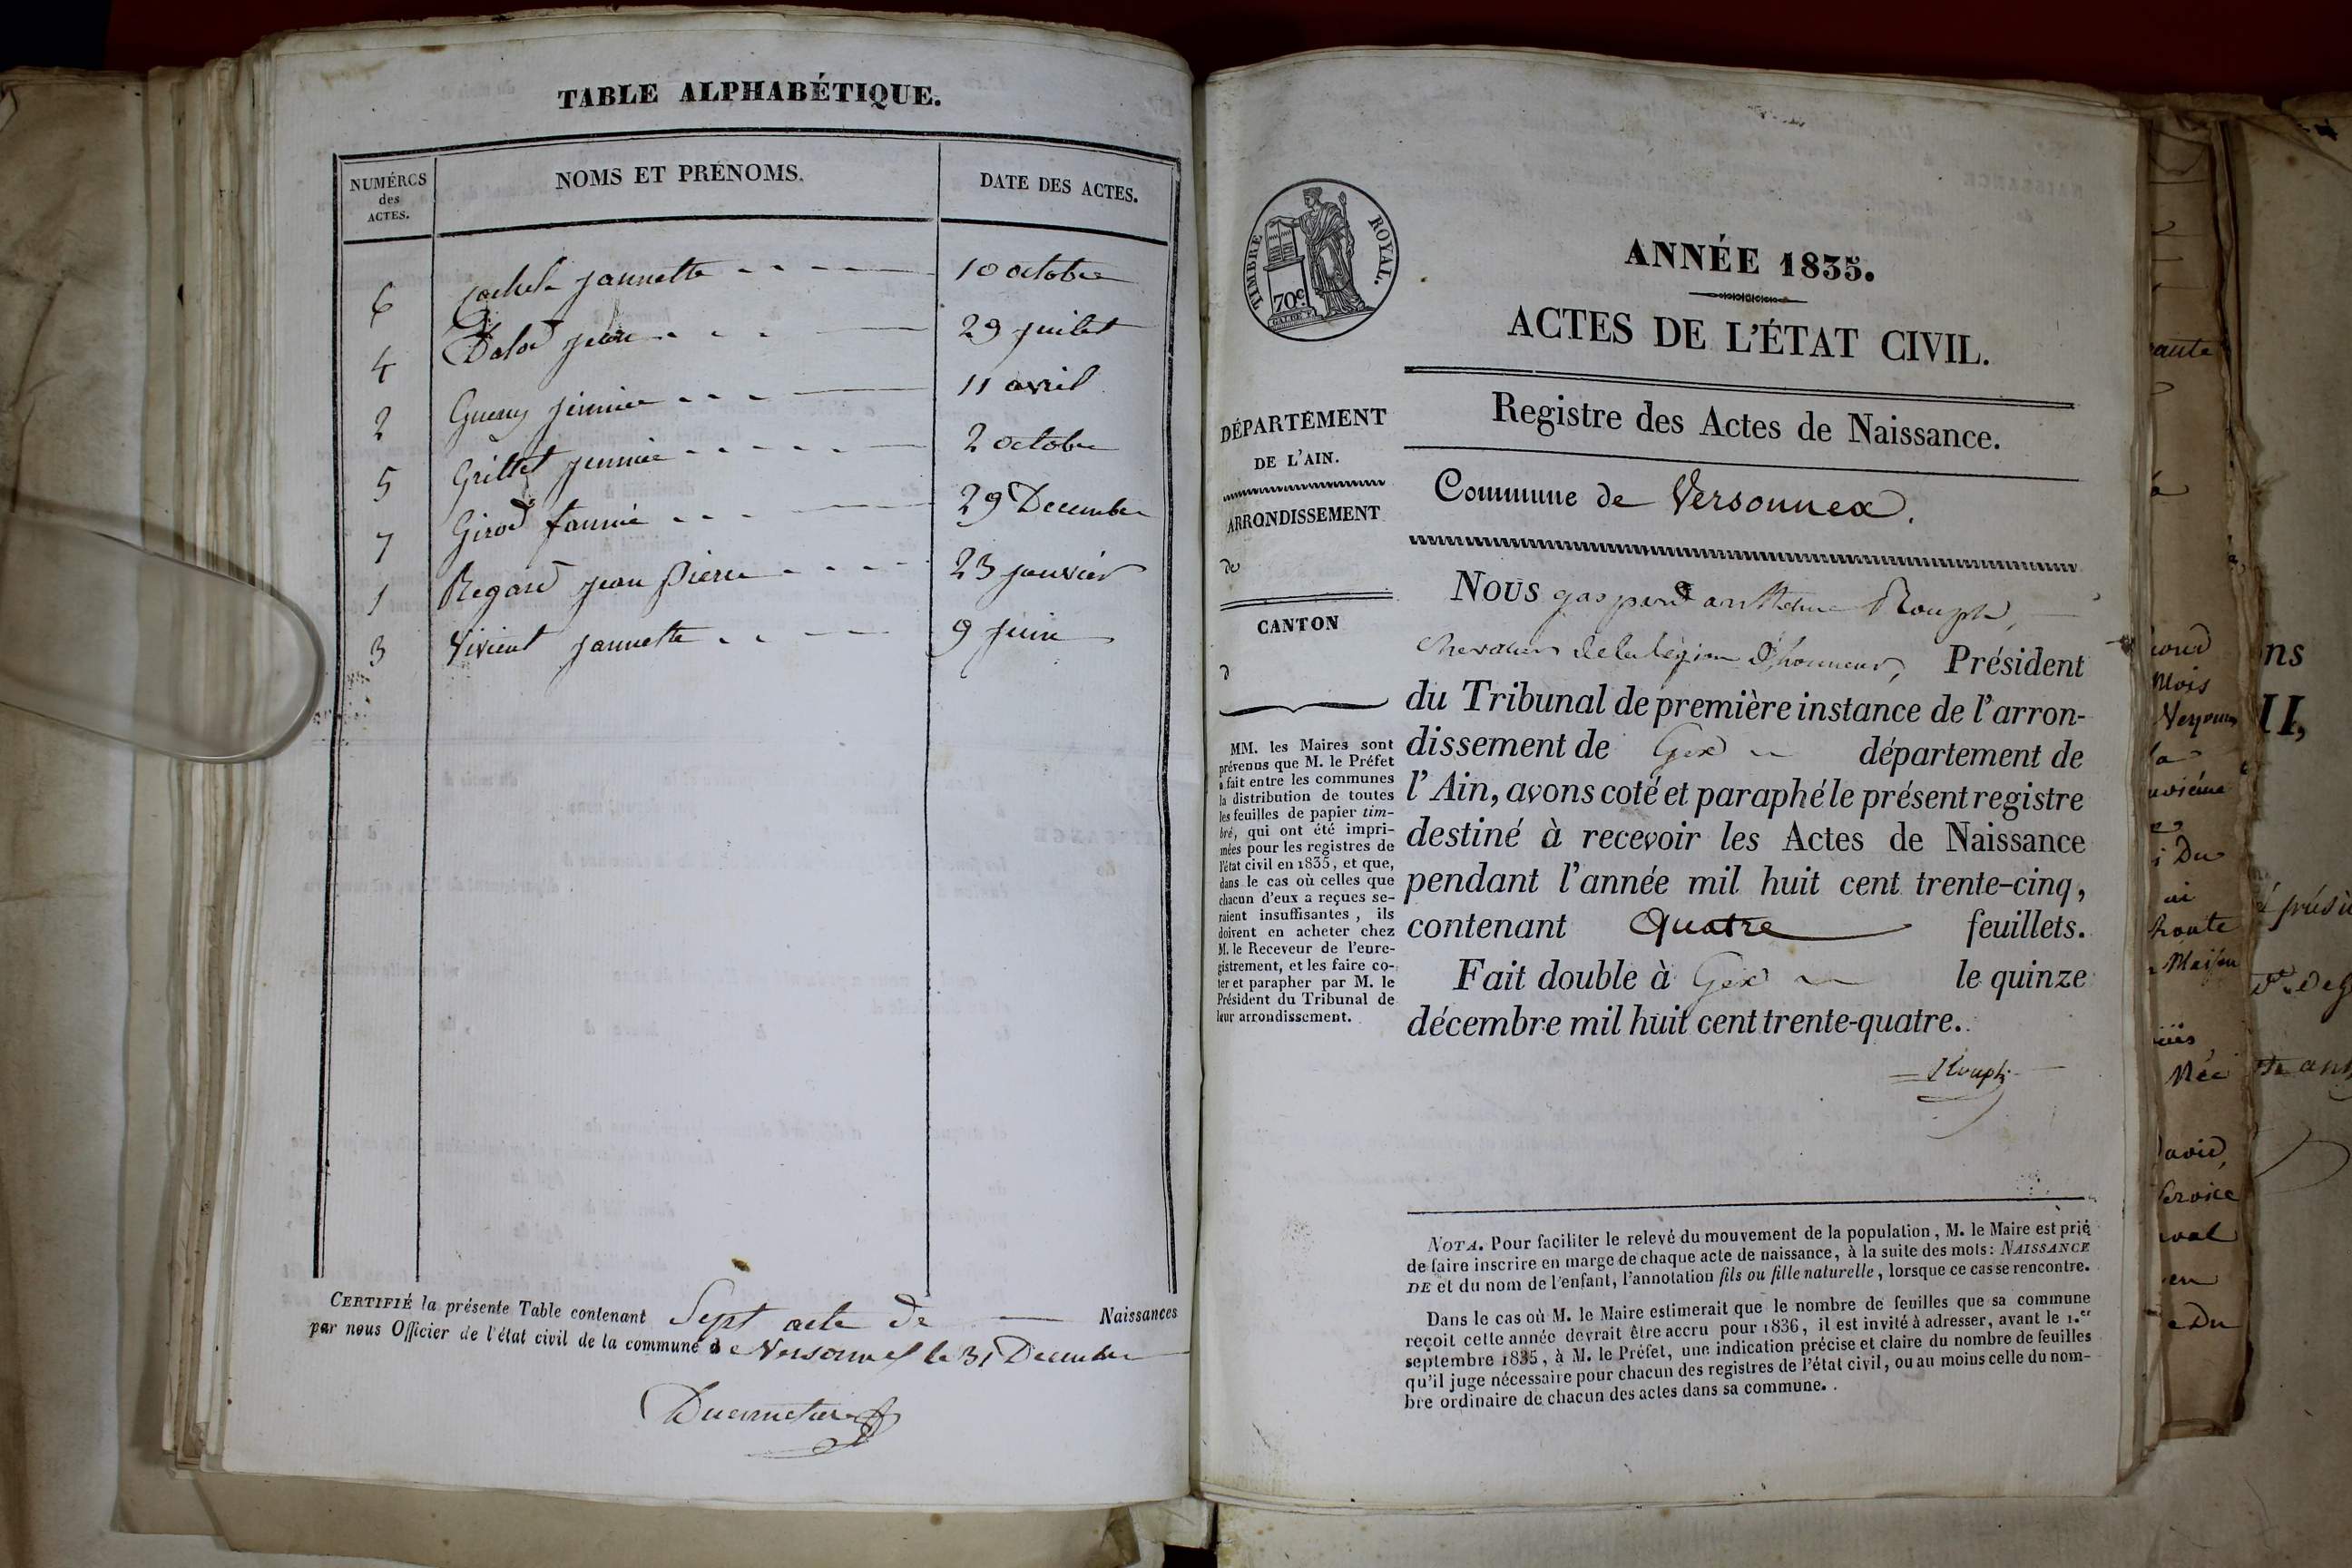 TABLE ALPHABÉTIQUE.
NUMÉROS
des
ACTES.
NOMS ET PRÉNOMS.
DATE DES ACTES.
6 jannette 10 octobre
4 29 juilet
2 11 avril
5 Grillet 2 octobre
7 Girod fannie 29 Decembre
1 Regard jean pierre 23 janvier
3 Vivient jannette 9 juin
CERTIFIÉ la présente Table contenant Sept acte de Naissances
par nous Officier de l'état civil de la commune de Versonnex le 31 Decembre
TIMBRE ROYAL.
70c.
ANNÉE 1835.
ACTES DE L'ÉTAT CIVIL.
Registre des Actes de Naissance.
Commune de Versonnex.
DÉPARTEMENT
DE L'AIN.
ARRONDISSEMENT
de
CANTON
d
MM. les Maires sont
prévenus que M. le Préfet
a fait entre les communes
la distribution de toutes
les feuilles de papier tim-
bré, qui ont été impri-
mées pour les registres de
l'état civil en 1835, et que,
dans le cas où celles que
chacun d'eux a reçues se-
raient insuffisantes, ils
doivent en acheter chez
M. le Receveur de l'enre-
gistrement, et les faire co-
ter et parapher par M. le
Président du Tribunal de
leur arrondissement.
NOUS gaspard anthelme Rouph,
chevalier de la légion d'honneur, Président
du Tribunal de première instance de l'arron-
dissement de Gex département de
l'Ain, avons coté et paraphé le présent registre
destiné à recevoir les Actes de Naissance
pendant l'année mil huit cent trente-cinq,
contenant Quatre feuillets.
Fait double à Gex le quinze
décembre mil huit cent trente-quatre.
Rouph
NOTA. Pour faciliter le relevé du mouvement de la population, M. le Maire est prié
de faire inscrire en marge de chaque acte de naissance, à la suite des mots: NAISSANCE
DE et du nom de l'enfant, l'annotation fils ou fille naturelle, lorsque ce cas se rencontre.
Dans le cas où M. le Maire estimerait que le nombre de feuilles que sa commune
reçoit cette année devrait être accru pour 1836, il est invité à adresser, avant le 1.er
septembre 1835, à M. le Préfet, une indication précise et claire du nombre de feuilles
qu'il juge nécessaire pour chacun des registres de l'état civil, ou au moins celle du nom-
bre ordinaire de chacun des actes dans sa commune.